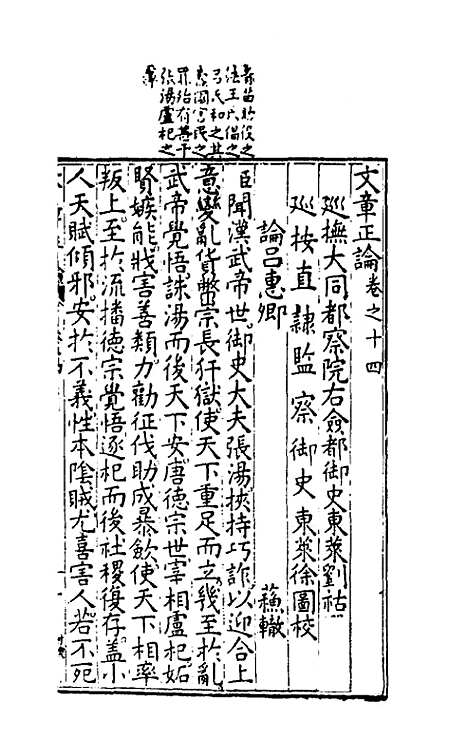 文章正論卷之十四
巡撫大同都察院右僉都御史東萊劉祜
巡按直隸監察御史東萊徐圖校
論呂惠卿 蘇轍
臣聞漢武帝世御史大夫張湯挾持巧詐以迎合上
意變亂貨幣宗長犴獄使天下重足而立幾至於亂
武帝覺悟誅湯而後天下安唐德宗世宰相盧杞妬
賢嫉能戕害善類力勸征伐助成暴斂使天下相率
叛上至於流播德宗覺悟逐杞而後社稷復存盖小
人天賦傾邪安於不義性本陰賊尤喜害人若不死
青苗助役之
法王氏倡之
呂氏和之其
蠹國害民之
罪殆有甚于
張湯盧杞之